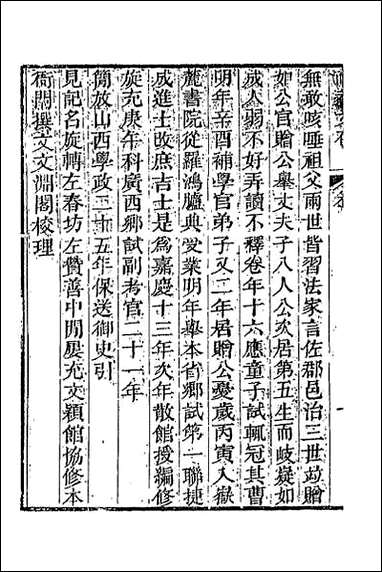 無敢咳唾祖父兩世皆習法家言佐郡邑治三世竝贈
如公官贈公舉丈夫子八人公次居第五生而岐嶷如
成人弱不好弄讀不釋卷年十六應童子試輒冠其曹
明年辛酉補學官弟子又二年居贈公憂歲丙寅入嶽
麓書院從羅鴻臚典受業明年舉本省鄉試第一聯捷
成進士改庶吉士是為嘉慶十三年次年散館授編修
旋充庚午科廣西鄉試副考官二十一年
簡放山西學政二十五年保送御史引
見記名旋轉左春坊左贊善中閒屢充文穎館協修本
衙門撰文文淵閣校理